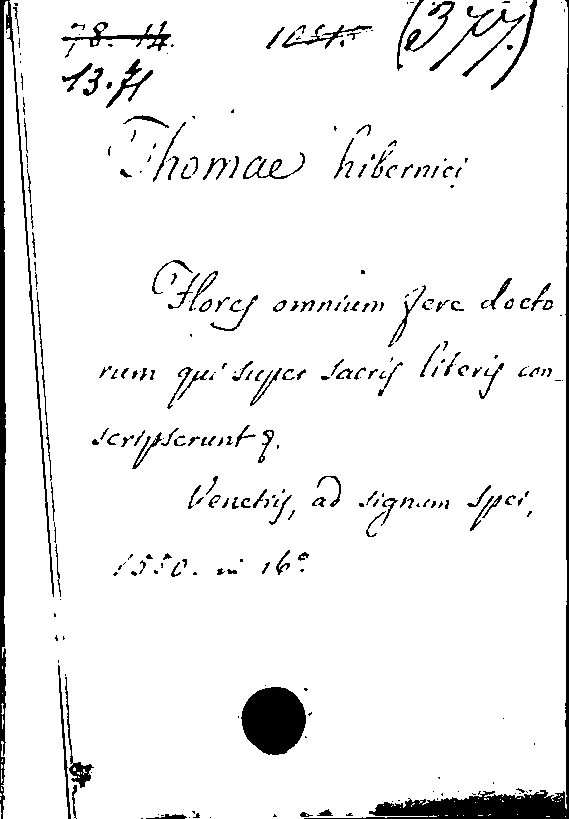 78. 14. (377.)
13.71
Thomae hibernici
Flores omnium fere docto
rum qui super sacris literis con_
scripserunt &.
Venetiis, ad signum spei,
1550. in 16º.